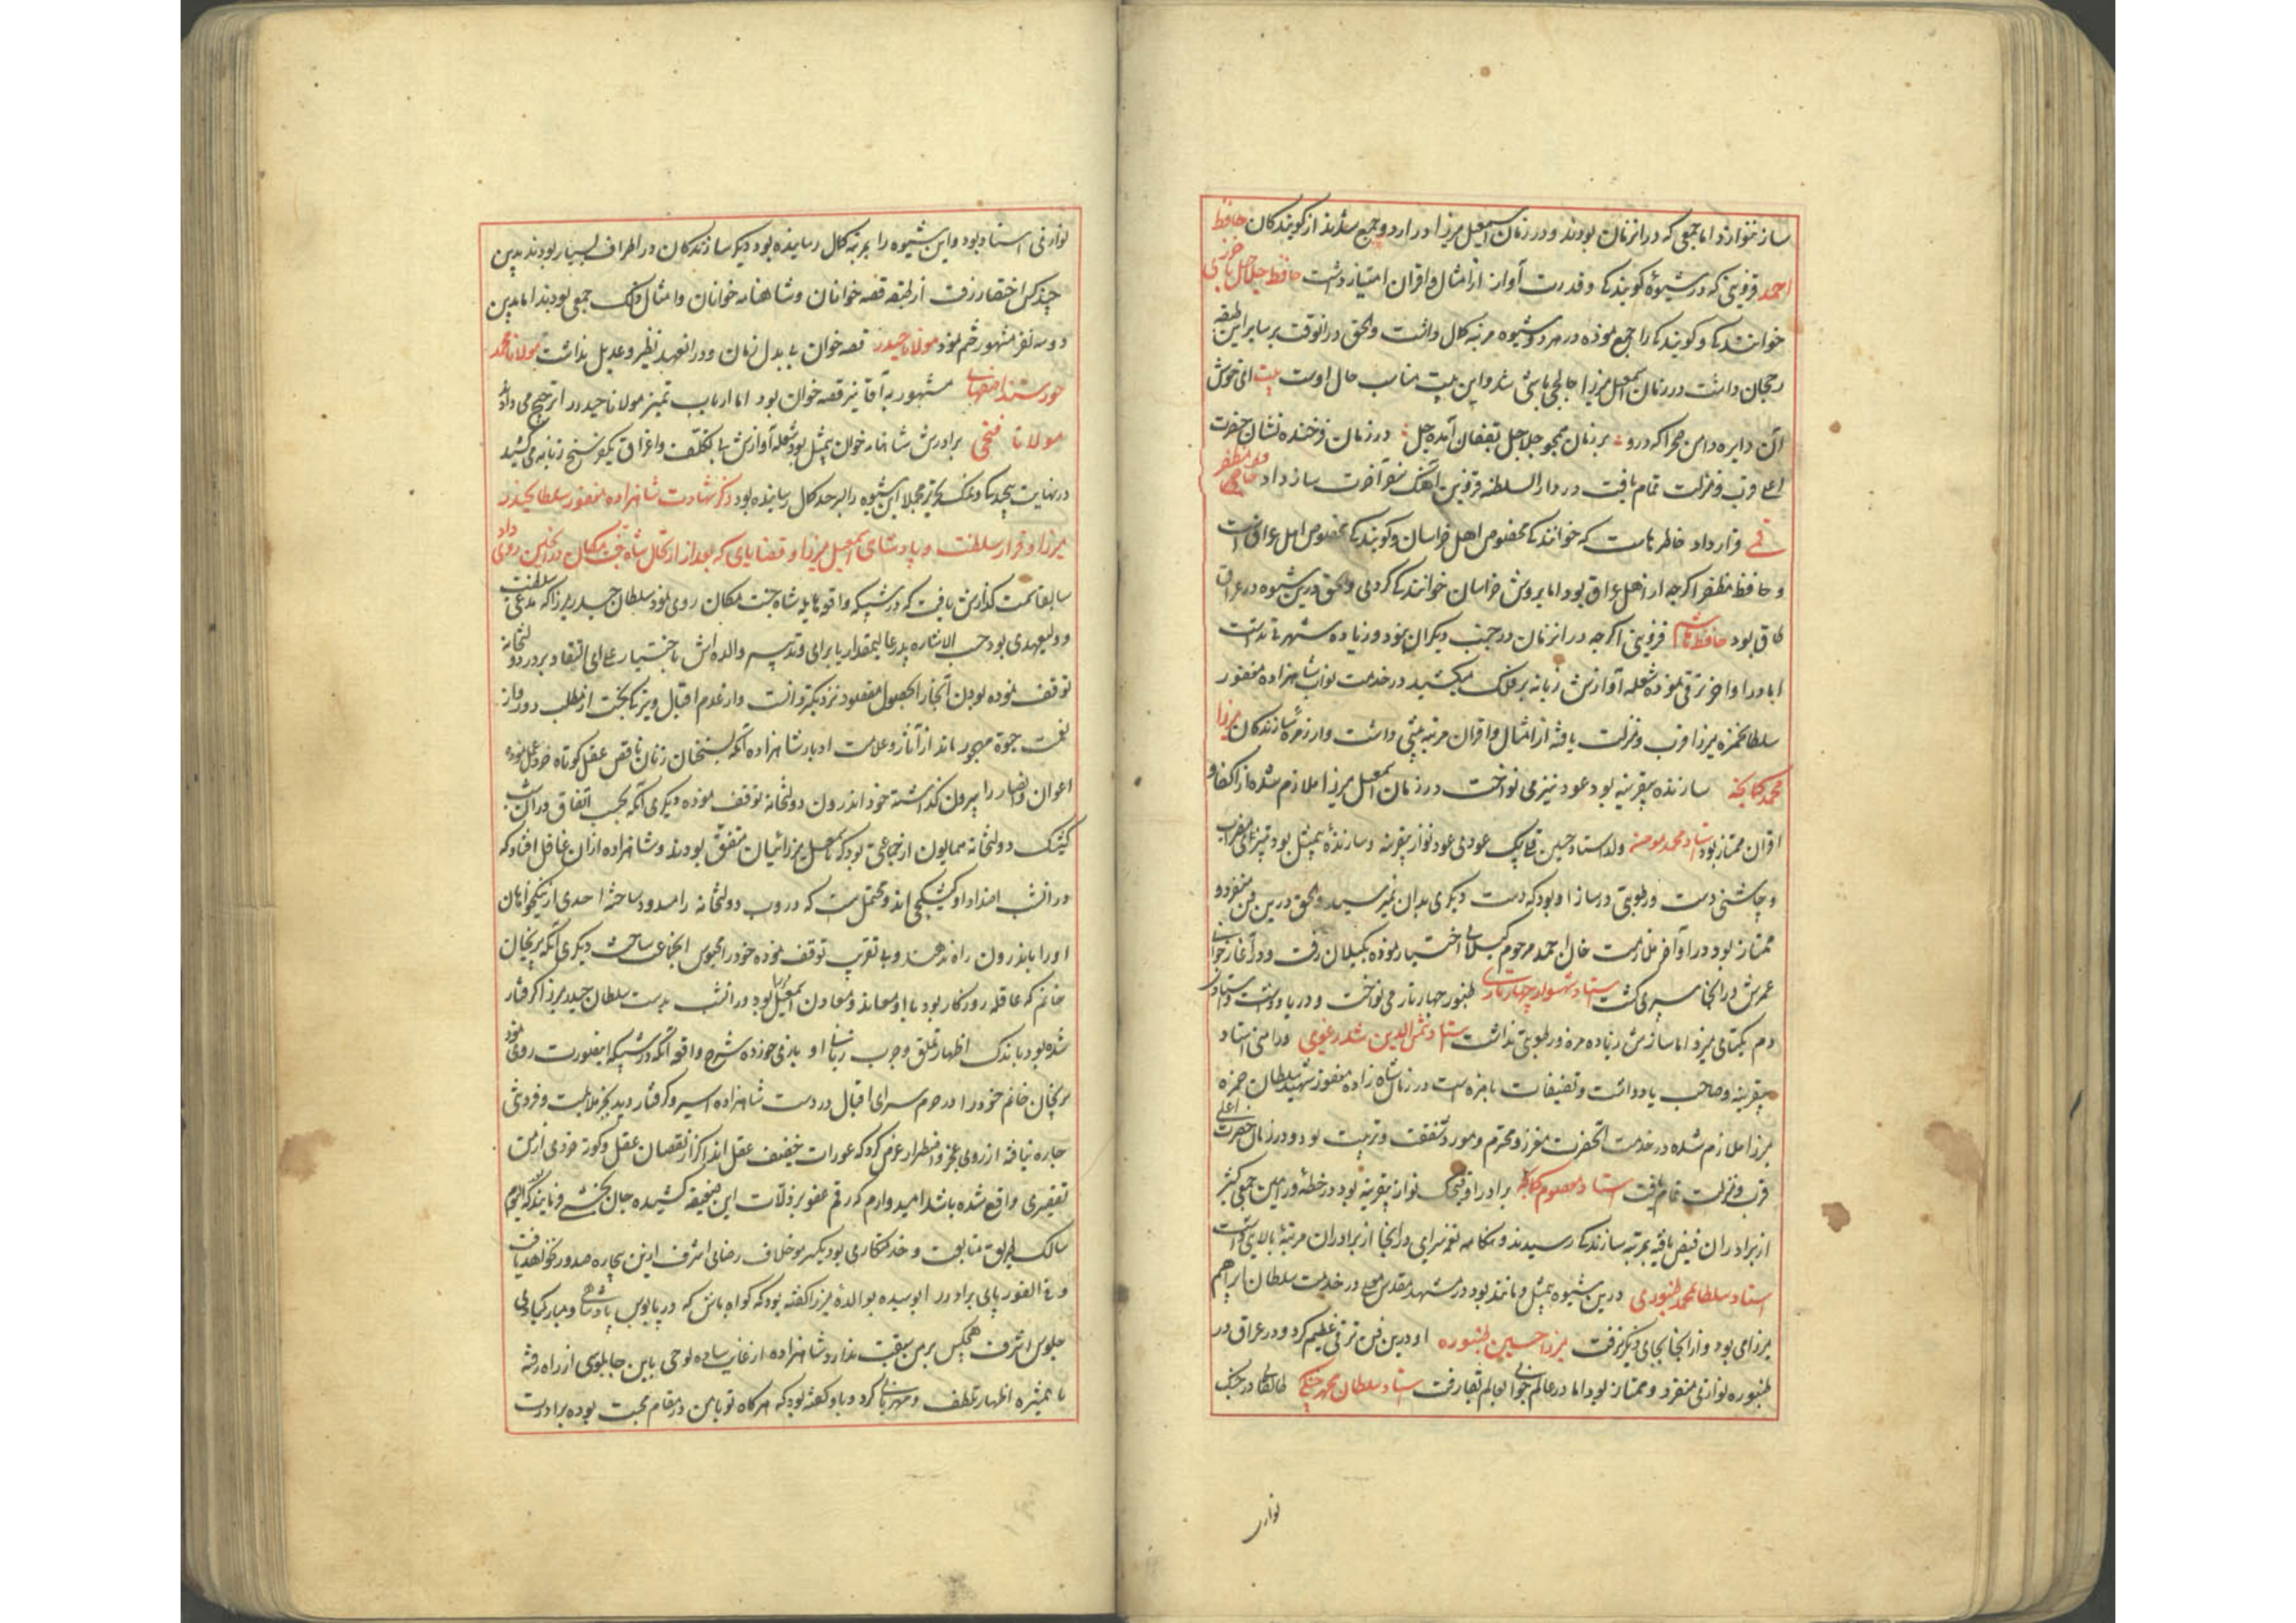 ساز ننوازد اما جمعی که در انزمان بودند و در زمان اسمعیل میرزا در اردو جمع شدند از کویندکان حافظ
احمد قزوینی که در شیوهٔ کویندکی و قدرت آواز از امثال و اقران امتیاز داشت حافظ جلاجل باخرزی
خوانندکی و کویندکی را جمع نموده در هر دو شیوه مرتبه کمال داشت و الحق در انوقت بر سایر این طبقه
رجحان داشت در زمان اسمعیل میرزا چالچی باشی شد و این بیت مناسب حال اوست بیت ای خوش
آن دایره دامن صحرا که درو بر زمان همچو جلاجل بفغان آمده جل در زمان فرخنده نشان حضرت
اعلی قرب و منزلت تمام یافت در دار السلطنه قزوین آهنک سفر آخرت ساز داد حافظ مظفر
قمی قرارداد خاطرهاست که خوانندکی مخصوص اهل خراسان و کویندکی مخصوص اهل عراقست
و حافظ مظفر اکرچه از اهل عراق بود اما بروش خراسان خوانندکی کردی و الحق درین شیوه در عراق
طاق بود حافظ هاشم قزوینی اکرچه در انزمان در جنب دیکران نبود و زیاده شهرتی نداشت
اما در اواخر ترقی نموده شعله آوازش زبانه بر فلک میکشید در خدمت نواب شاهزاده مغفور
سلطان حمزه میرزا قرب و منزلت یافته از امثال و اقران مرتبه بیشی داشت و از زمره سازندکان میرزا
محمد کمانچه سازنده بیقرینه بود عود نیز می نواخت در زمان اسمعیل میرزا ملازم شده از اکفا و
اقران ممتاز بود استاد محمد مومن ولد استاد حسین عودی عود نواز بیقرینه و سازندهٔ بیمثل بود تیزی مضراب
و چاشنی دست و رطوبتی در ساز او بود که دست دیکری بدان نمیرسید و الحق درین فن منفرد و
ممتاز بود در اواخر ملازمت خان احمد مرحوم کیلانی اختیار نموده بکیلان رفت و در آغاز جوانی
عمرش در انجا سپری کشت استاد شهسوار چهارتاری طنبور چهارتار می نواخت و در یاد داشت و استادی
دم یکتایی میزد اما سازش زیاده مزه و رطوبتی نداشت استاد شمس الدین شدرغوی در امنی استاد
بیقرینه و صاحب یاد داشت و تصنیفات بامزه است در زمان شاهزاده مغفور شهید سلطان حمزه
میرزا ملازم شده در خدمت آنحضرت معزز و محترم و مورد شفقت و تربیت بود و در زمان حضرت اعلی
قرب و منزلت تمام یافت استاد معصوم کمانچه برادر او نواز بیقرینه بود در خطه ورامین جمعی کثیر
از برادران فیض یافته بمرتبه سازندکی رسیدند و هنکامه نغمه سرایی در انجا از برادران مرتبهٔ بالایی داشت
استاد سلطان محمد طنبوری درین شیوه بیمثل و مانند بود در مشهد مقدس معلی در خدمت سلطان ابراهیم
میرزا می بود و از انجا بجای دیکر نرفت میرزا حسین طنبوره او درین فن ترقی عظیم کرد و در عراق در
طنبوره نوازی منفرد و ممتاز بود اما در عالم جوانی بعالم بقا رفت استاد سلطان محمد چنکی در چنک
نوازی
نوازی استاد بود و این شیوه را بمرتبه کمال رسانیده بود دیکر سازندکان در اطراف بسیار بودند بدین
چند کس اختصار رفت از طبقه قصه خوانان و شاهنامه خوانان و امثال ذلک جمعی بودند اما بدین
دو سه نفر مشهور ختم نمود مولانا حیدر قصه خوان بی بدل زمان و در انعهد نظیر و عدیل نداشت مولانا محمد
خورشید اصفهانی مشهور به آقا نیز قصه خوان بود اما ارباب تمیز مولانا حیدر را ترجیح می دادند
مولانا فتحی برادرش شاهنامه خوان بیمثل بود شعله آوازش بی تکلف و اغراق یکفرسخ زبانه می کشید
در نهایت پیچیدکی و نمک و تحریر مجملا این شیوه را بسرحد کمال رسانیده بود ذکر شهادت شاهزاده مغفور سلطان حیدر
میرزا و قرار سلطنت و پادشاهی اسمعیل میرزا و قضایای که بعد از ارتحال شاه جنت مکان در انحین روی داد
سابقا سمت کذارش یافت که در شبیکه واقعه هایله شاه جنت مکان روی نمود سلطان حیدر میرزا که مدعی سلطنت
و ولیعهدی بود حسب الاشاره پدر عالیمقدار یا برای و تدبیر والده اش باختیار علی ای التقادیر در دولتخانه
توقف نموده بودن آنجا را بحصول مقصود نزدیکتر دانست و از عدم اقبال و تیرکی بخت از مطلب دور و از
نعمت حیوة مهجور ماند از آثار و علامت ادبار شاهزاده آنکه بسخنان زنان ناقص عقل کوتاه خرد عمل نموده
اعوان و انصار را بیرون کذاشته خود اندرون دولتخانه توقف نموده دیکری آنکه بحسب اتفاق در آن شب
کشیک دولتخانه همایون از جماعتی بود که باسمعیل میرزائیان متفق بودند و شاهزاده ازان غافل افتاد که
در انشب اضداد او کشیکچی اند و محتمل است که دروب دولتخانه را مسدود ساخته احدی از نیکخواهان
او را باندرون راه ندهند و بی تقریب توقف نموده خود را محبوس انجماعت ساخت دیکری آنکه پریخان
خانم که عاقله روزکار بود با او معاند و معاون اسمعیل میرزا بود در انشب بدست سلطان حیدر میرزا کرفتار
شده بود باندک اظهار تملق و چرب زبانی او بازی خورده شرح واقعه آنکه در شبیکه اینصورت روی نمود
پریخان خانم خود را در حرم سرای اقبال در دست شاهزاده اسیر و کرفتار دید بجز ملایمت و فروتنی
چاره نیافته از روی عجز و اضطرار عرض کرد که عورات خفیف عقل اند اکر از نقصان عقل و کوته خردی از من
تقصیری واقع شده باشد امیدوارم که رقم عفو بر زلات این ضعیفه کشیده جان بخشی فرمایند که الیوم
سالک طریق متابعت و خدمتکاری بوده یکسر مو خلاف رضای اشرف ازین بیچاره صدور نخواهد یافت
و فی الفور پای برادر را بوسیده بوالدهٔ میرزا کفته بود که کواه باش که در پابوس پادشاهی و مبارکبادی
جلوس اشرف هیچکس بر من سبقت ندارد شاهزاده از غایت ساده لوحی باین چاپلوسی از راه رفته
با همشیره اظهار تلطف و مهربانی کرد و باو کفته بود که هر کاه تو با من در مقام محبت بوده برادرت